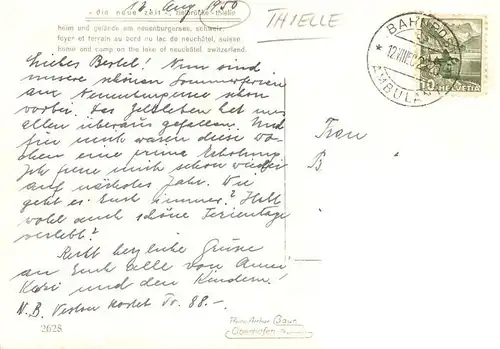 12. Aug. 1950
THIELLE
"die neue zeit", zielbrücke-thielle
heim und gelände am neuenburgersee, schweiz.
foyer et terrain au bord du lac de neuchâtel, suisse
home and camp on the lake of neuchâtel, switzerland.
BAHNPOST
* 12.VIII.50
AMBULANT
10 HELVETIA
Liebes Bertel! Nun sind
unsere schönen Sommerferien
am Neuenburgersee schon
vorbei. Das Zeltleben hat uns
allen überaus gefallen. Und
für mich waren diese Wo-
chen eine prima Erholung.
Ich freue mich schon wieder
auf nächstes Jahr. Wie
geht es Euch immer? Habt
wohl auch schöne Ferientage
verlebt?
Recht herzliche Grüsse
an Euch alle von
und den Kindern!
N.B. kostet Fr. 88.-
Frau
B
2628
Photo Atelier Baur
Oberhofen